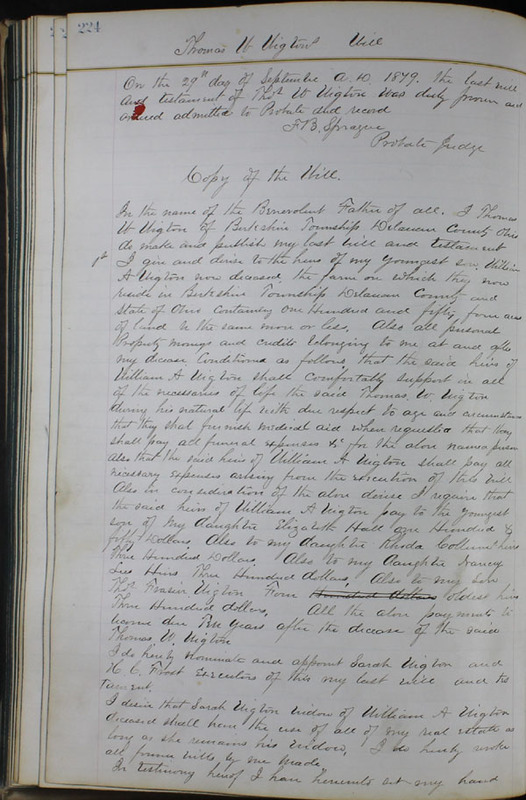 224
Thomas W Vigtons Will
On the 29th day of September A.D. 1879. the last will
and testament of Thos W Vigton was duly proven and
ordered admitted to Probate and record
F.B. Sprague
Probate Judge
Copy of the Will.
In the name of the Benevolent Father of all. I Thomas
W Vigton of Berkshire Township Delaware County Ohio
do make and publish my last will and testament
1st I give and devise to the heirs of my youngest son William
A Vigton now deceased, the farm on which they now
reside in Berkshire Township Delaware County and
State of Ohio containing One Hundred and fifty four acres
of land be the same more or less, Also all personal
Property moneys and credits belonging to me at and after
my decease Conditioned as follows, that the said heirs of
William A Vigton shall Comfortably support in all
of the necessaries of life the said Thomas. W. Vigton
during his natural life with due respect to age and circumstances
that they shal furnish medical aid when requested that they
shall pay all funeral expenses &c for the above named person
also that the said heirs of William A Vigton shall pay all
necessary expenses arising from the execution of this will
Also in consideration of the above devise I require that
the said heirs of William A Vigton pay to the youngest
son of My daughter Elizabeth Hall One Hundred &
fifty Dollars. Also to my daughter Rhoda heirs
Three Hundred Dollars. Also to my daughter Nancy
Lees Heirs Three Hundred dollars, Also to my son
Thos Frasier Vigton Four Hundred dollars oldest heir
Three Hundred dollars, All the above payments to
become due Ten Years after the decease of the said
Thomas W. Vigton
I do hereby nominate and appoint Sarah Vigton and
H C. Frost executors of this my last will and tes
tament,
I desire that Sarah Vigton widow of William A Vigton
deceased shall have the use of all of my real estate as
long as she remains his widow, I do hereby revoke
all former wills by me made
In testimony hereof I have hereunto set my hand